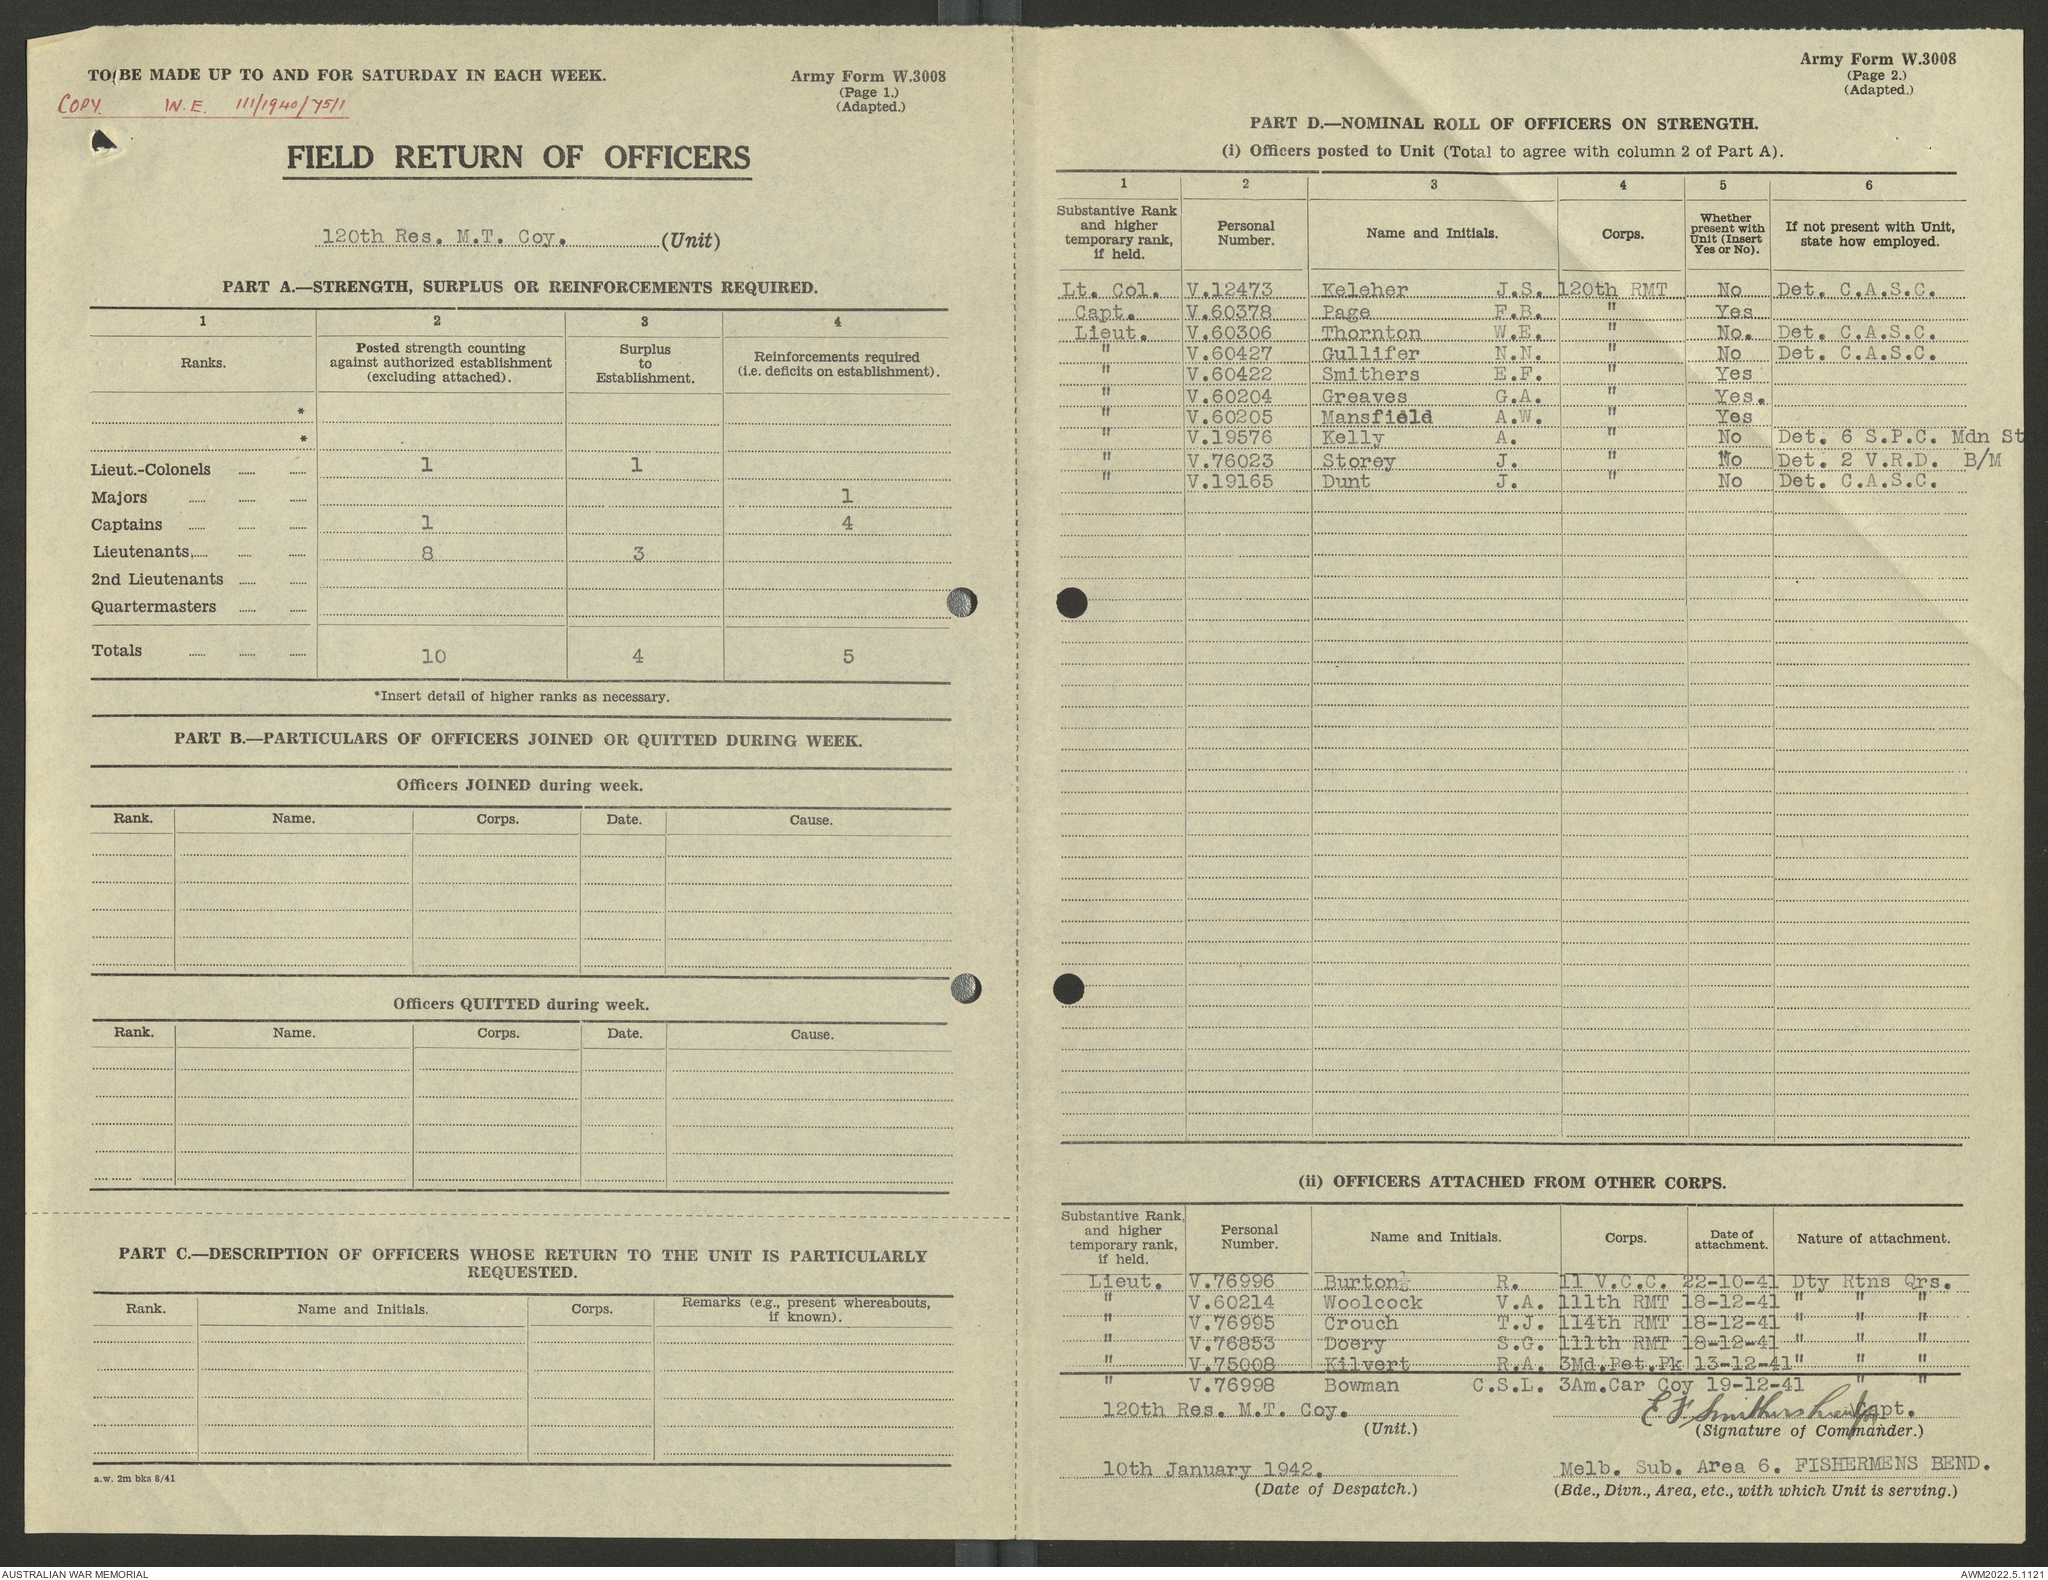 TO BE MADE UP TO AND FOR SATURDAY IN EACH WEEK.
Army Form W.3008
(Page 1.)
(Adapted.)
COPY. W.E. 111/1940/75/1
FIELD RETURN OF OFFICERS
120th Res. M.T. Coy. (Unit)
PART A.—STRENGTH, SURPLUS OR REINFORCEMENTS REQUIRED.
1 2 3 4
Ranks. Posted strength counting against authorized establishment (excluding attached). Surplus to Establishment. Reinforcements required (i.e. deficits on establishment).
*
*
Lieut.-Colonels 1 1
Majors 1
Captains 1 4
Lieutenants 8 3
2nd Lieutenants
Quartermasters
Totals 10 4 5
*Insert detail of higher ranks as necessary.
PART B.—PARTICULARS OF OFFICERS JOINED OR QUITTED DURING WEEK.
Officers JOINED during week.
Rank. Name. Corps. Date. Cause.
Officers QUITTED during week.
Rank. Name. Corps. Date. Cause.
PART C.—DESCRIPTION OF OFFICERS WHOSE RETURN TO THE UNIT IS PARTICULARLY
REQUESTED.
Rank. Name and Initials. Corps. Remarks (e.g., present whereabouts, if known).
a.w. 2m bks 8/41
Army Form W.3008
(Page 2.)
(Adapted.)
PART D.—NOMINAL ROLL OF OFFICERS ON STRENGTH.
(i) Officers posted to Unit (Total to agree with column 2 of Part A).
1 2 3 4 5 6
Substantive Rank and higher temporary rank, if held. Personal Number. Name and Initials. Corps. Whether present with Unit (Insert Yes or No). If not present with Unit, state how employed.
Lt. Col. V.12473 Keleher J.S. 120th RMT No Det. C.A.S.C.
Capt. V.60378 Page F.B. " Yes
Lieut. V.60306 Thornton W.E. " No. Det. C.A.S.C.
" V.60427 Gullifer N.N. " No Det. C.A.S.C.
" V.60422 Smithers E.F. " Yes
" V.60204 Greaves G.A. " Yes.
" V.60205 Mansfield A.W. " Yes
" V.19576 Kelly A. " No Det. 6 S.P.C. Mdn St
" V.76023 Storey J. " No Det. 2 V.R.D. B/M
" V.19165 Dunt J. " No Det. C.A.S.C.
(ii) OFFICERS ATTACHED FROM OTHER CORPS.
Substantive Rank, and higher temporary rank, if held. Personal Number. Name and Initials. Corps. Date of attachment. Nature of attachment.
Lieut. V.76996 Burton R. 11 V.C.C. 22-10-41 Dty Rtns Qrs.
" V.60214 Woolcock V.A. 111th RMT 18-12-41 " " "
" V.76995 Crouch T.J. 114th RMT 18-12-41 " " "
" V.76853 Doery S.G. 111th RMT 18-12-41 " " "
" V.75008 Kilvert R.A. 3Md.Pet.Pk 13-12-41 " " "
" V.76998 Bowman C.S.L. 3Am.Car Coy 19-12-41 " "
120th Res. M.T. Coy. E F Smithers Lieut Capt.
(Unit.) (Signature of Commander.)
10th January 1942. Melb. Sub. Area 6. FISHERMENS BEND.
(Date of Despatch.) (Bde., Divn., Area, etc., with which Unit is serving.)
AUSTRALIAN WAR MEMORIAL AWM2022.5.1121